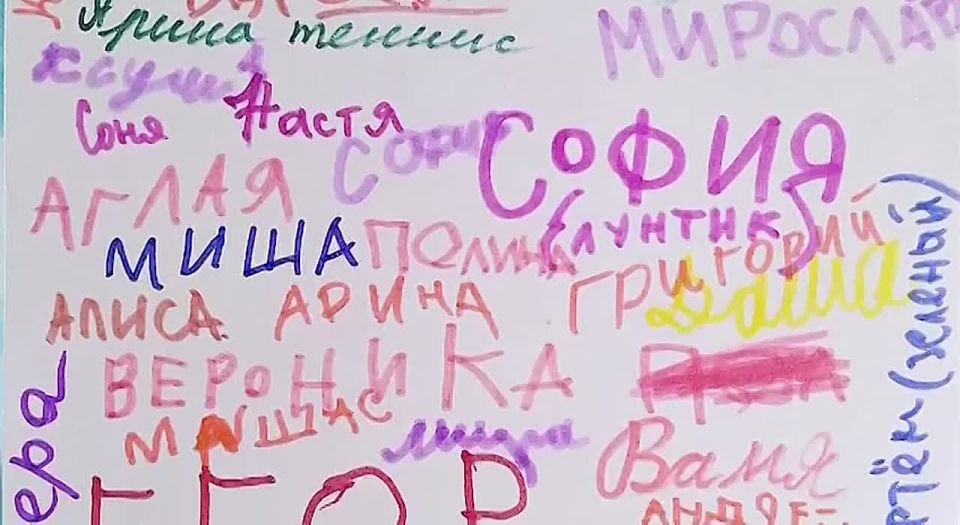 Арина теннис
МИРОСЛАВ
Ксения
Соня Настя
София СОФИЯ
АГЛАЯ (ЛУНТИК)
МИША ПОЛИНА ГРИГОРИЙ
АЛИСА АРИНА Даша
ВЕРОНИКА
Ваня
ЕГОР
АНДРЕ
ера
ртём (зеленый)